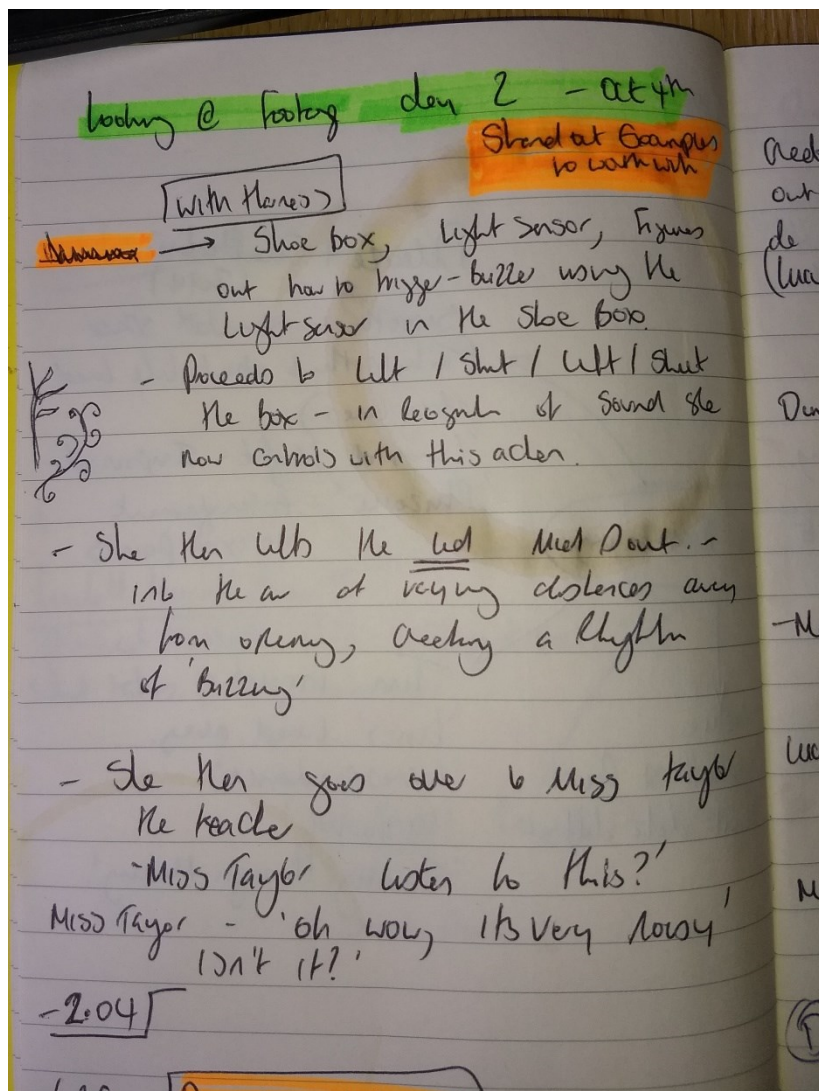 Looking @ Footag day 2 - Oct 4th
Stand out Examples
to work with
With Harness
Shoe box, Light sensor, Figures
out how to trigger - buzzer using the
Light sensor in the Shoe Box.
- Proceeds to Lift / Shut / Lift / Shut
the box - in Recognition of Sound she
now controls with this action.
- She then lifts the lid
into the air at varying distances away
from opening, creating a Rhythm
of 'Buzzing'
- She then goes over to Miss Taylor
the teacher
- Miss Taylor listen to this?'
Miss Taylor - 'oh wow, its very noisy'
isn't it?'
- 2.04